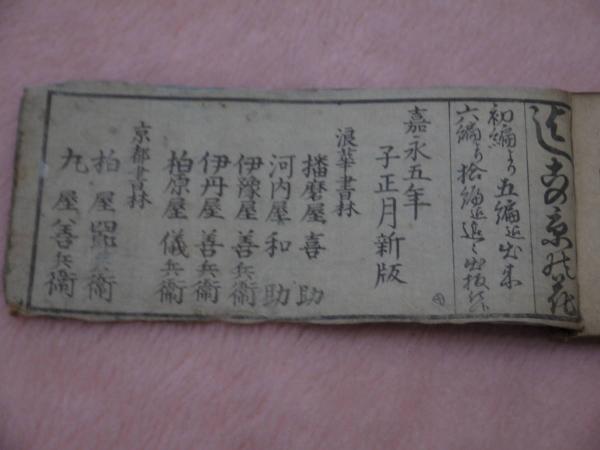 初編より五編迄出来
六編より拾編迄追々出板仕候
嘉永五年
子正月新版
浪華書林
播磨屋喜助
河内屋和助
伊豫屋善兵衞
伊丹屋善兵衞
柏原屋儀兵衞
京都書林
丸屋善兵衞